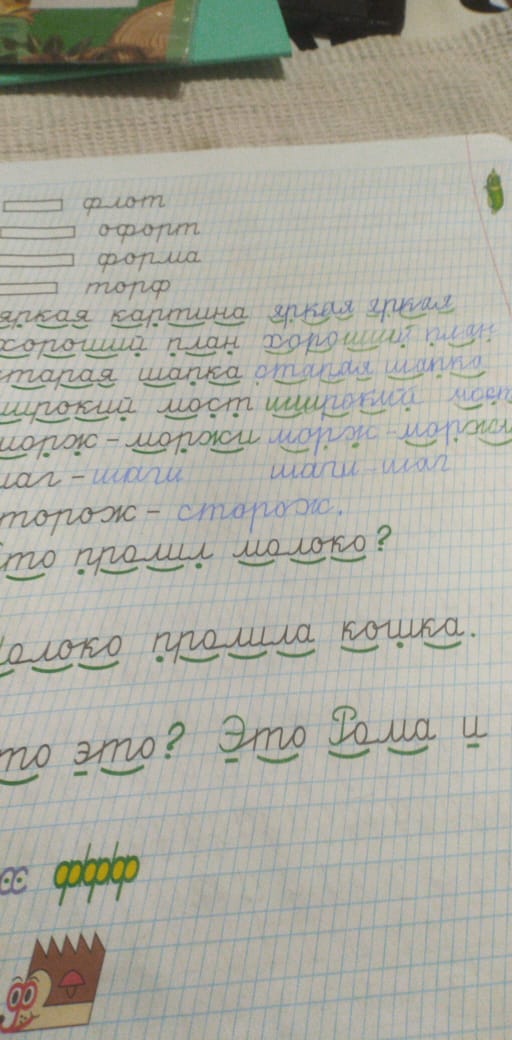 флот
офорт
форма
торф
яркая картина яркая яркая
хороший план хороший план
старая шапка старая шапка
широкий мост широкий мост
морж - моржи морж - моржи
шаг - шаги шаги - шаг
сторож - сторож.
Кто пролил молоко?
Молоко пролила кошка.
Кто это? Это Рома и
ее ффф